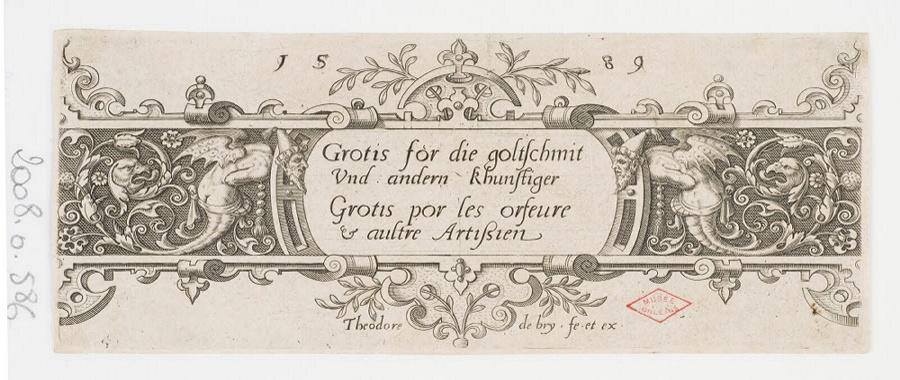 1589
Grotis för die goltschmit
Vnd andern Khunstiger
Grotis por les orfeure
& aultre Artißien
Theodore de bry · fe · et ex ·
MUSÉE
2008.0.586